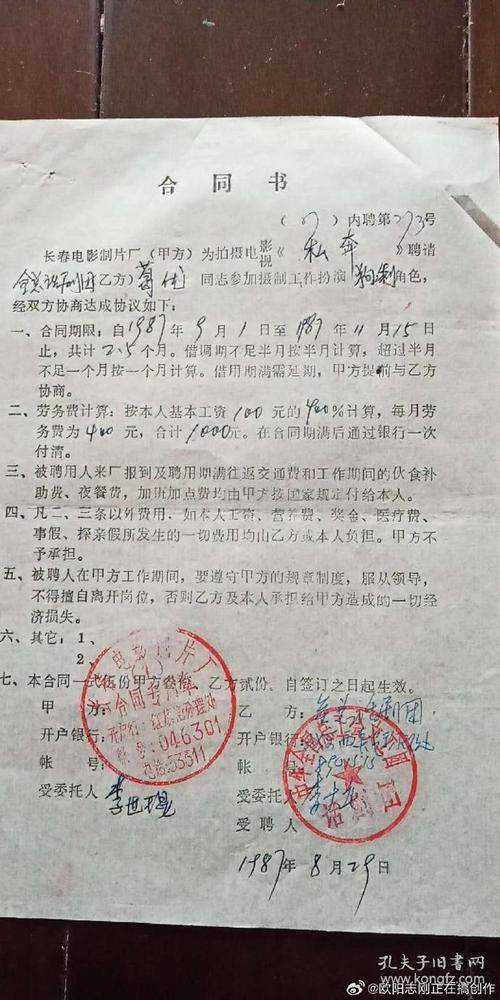 合同书
(87)内聘第273号
长春电影制片厂(甲方)为拍摄电影视《私奔》聘请
全总话剧团(乙方)葛优同志参加摄制工作扮演角色,
经双方协商达成协议如下:
一、合同期限:自1987年9月1日至1987年11月15日
止,共计2.5个月。借调期不足半月按半月计算,超过半月
不足一个月按一个月计算。借用期满需延期,甲方提前与乙方
协商。
二、劳务费计算:按本人基本工资100元的400%计算,每月劳
务费为400元,合计1000元。在合同期满后通过银行一次
付清。
三、被聘用人来厂报到及聘用期满往返交通费和工作期间的伙食补
助费、夜餐费,加班加点费均由甲方按国家规定付给本人。
四、凡二、三条以外费用,如本人工资、营养费、奖金、医疗费、
事假、探亲假所发生的一切费用均由乙方或本人负担。甲方不
予承担。
五、被聘人在甲方工作期间,要遵守甲方的规章制度,服从领导,
不得擅自离开岗位,否则乙方及本人承担给甲方造成的一切经
济损失。
六、其它:1、
2、
七、本合同一式伍份甲方叁份,乙方贰份,自签订之日起生效。
甲方:
乙方:全总话剧团
开户银行:
开户银行:
帐号:
帐号:
受委托人
受委托人
受聘人
电影制片厂
合同专用章
046301
电话:53311
话剧团
1987年8月29日
孔夫子旧书网
www.kongfz.com
@欧阳志刚正在搞创作